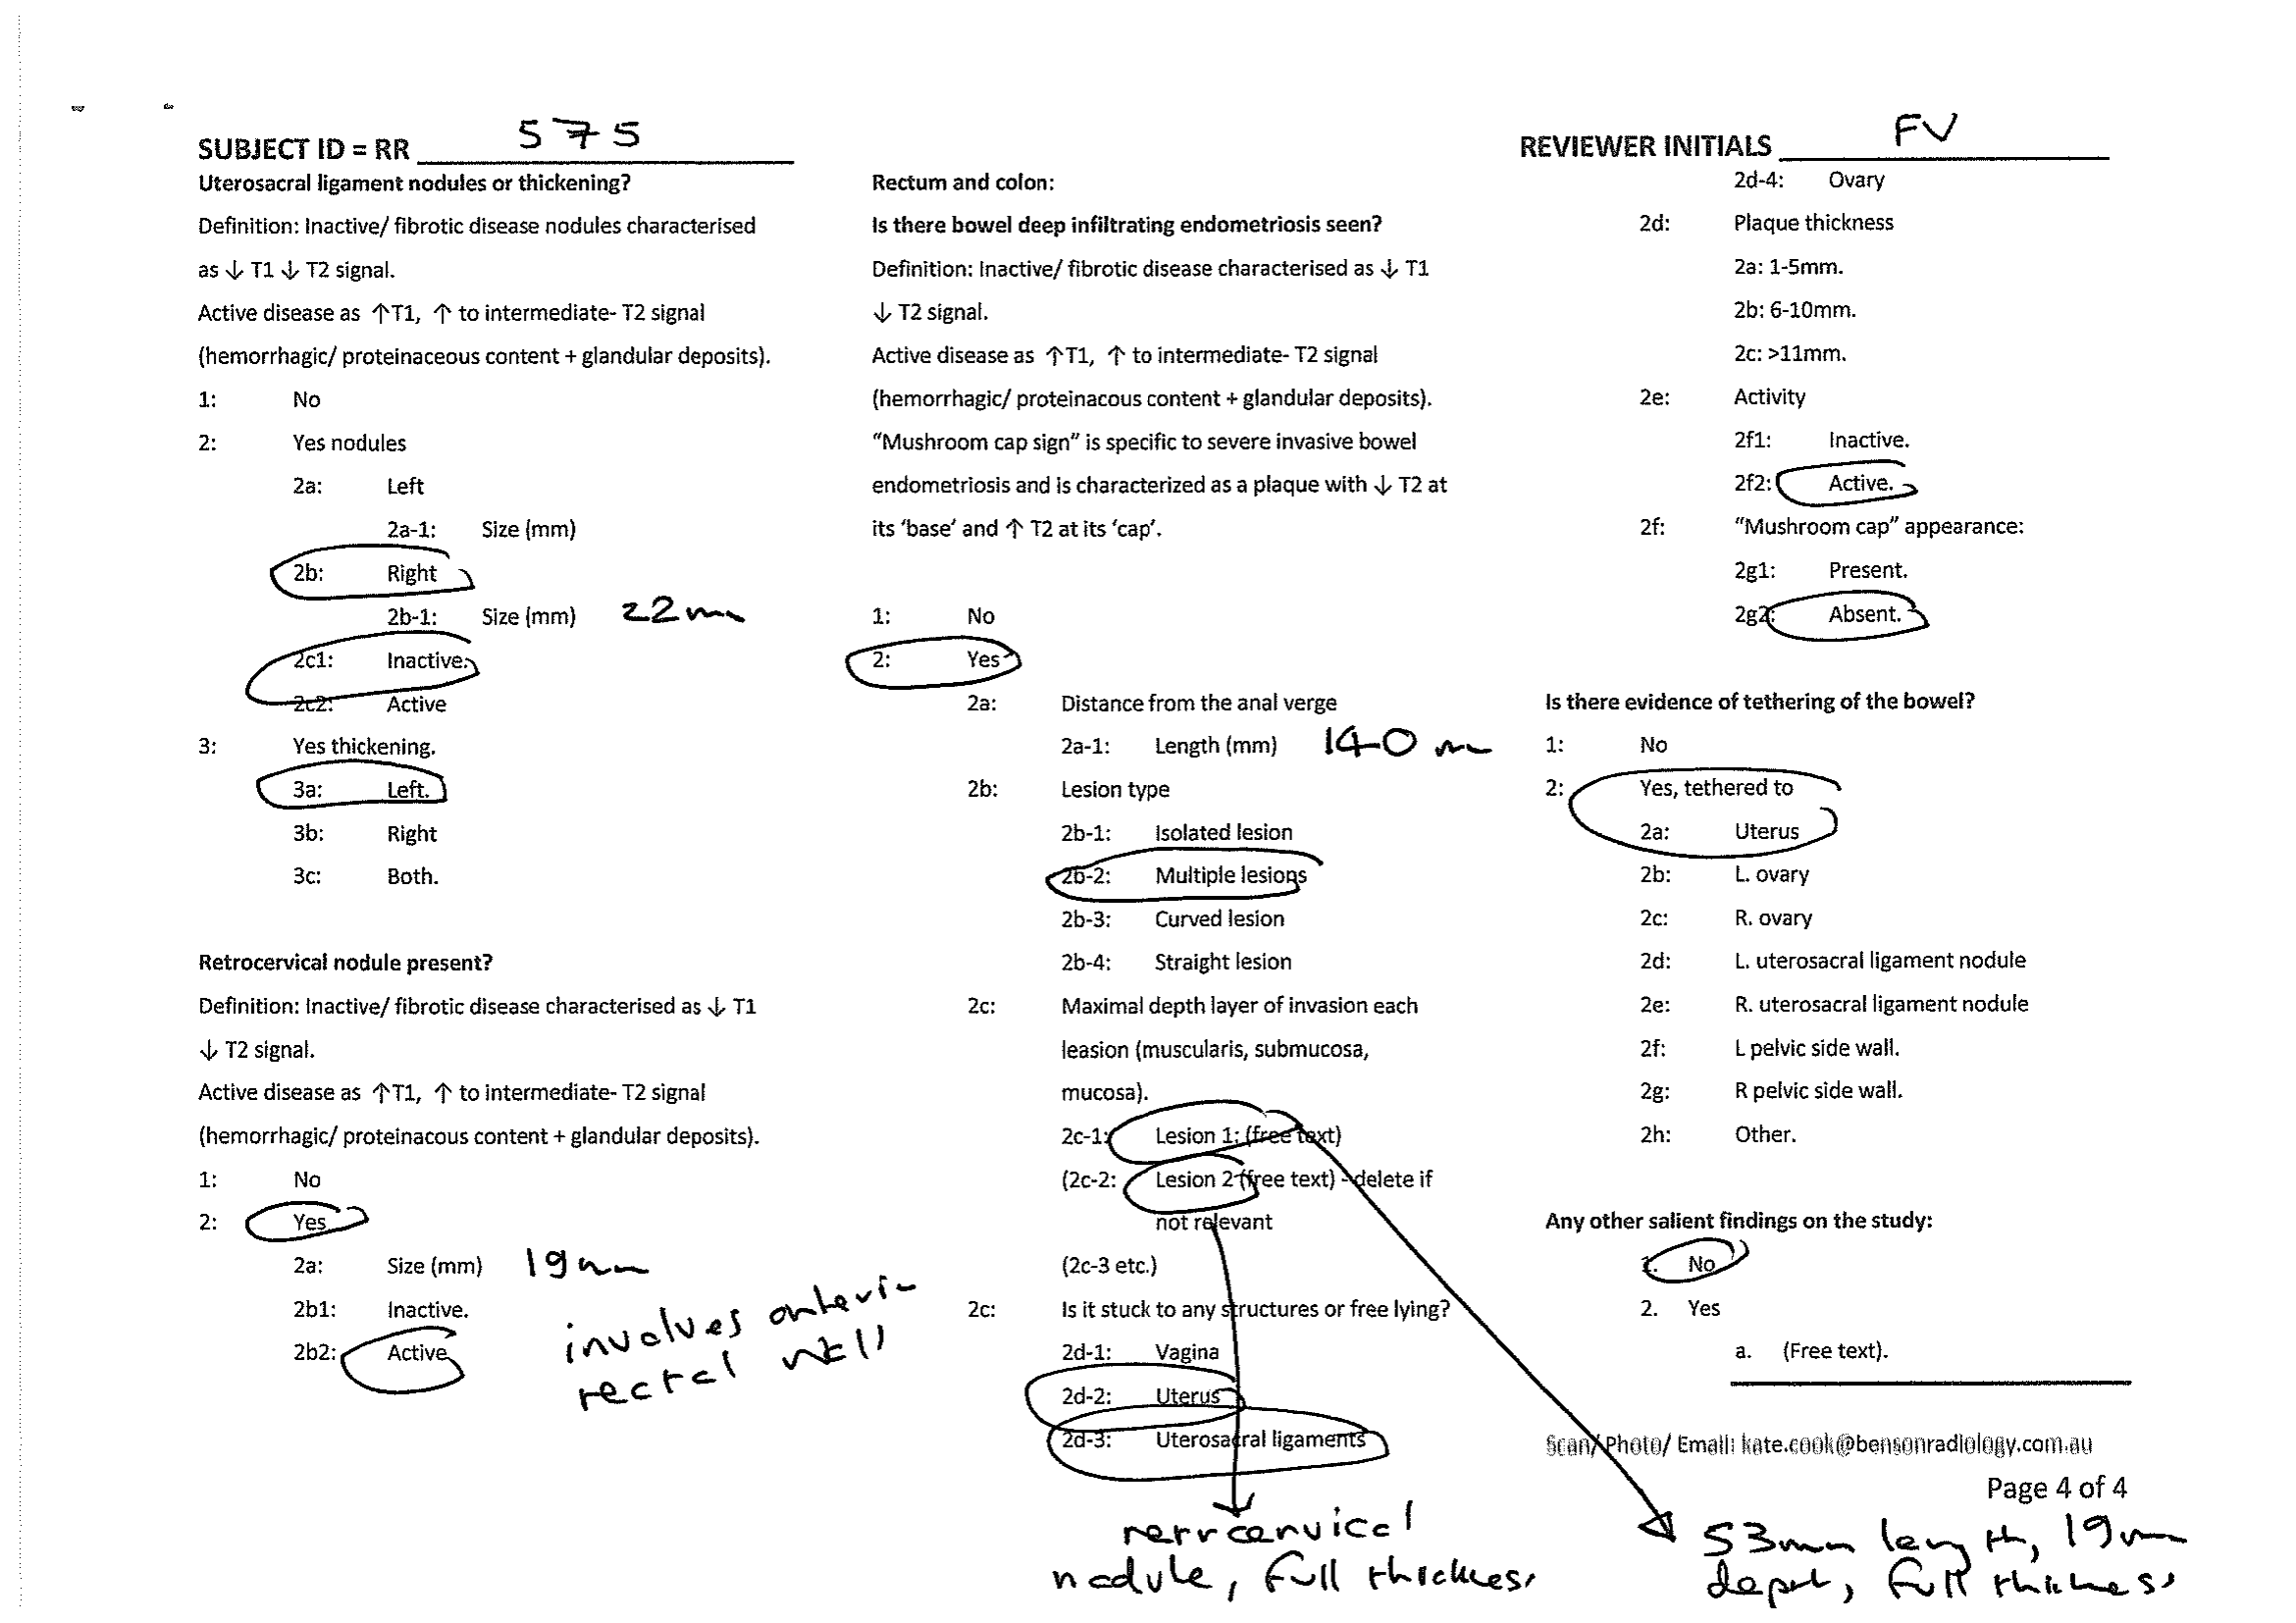 SUBJECT ID = RR 575
REVIEWER INITIALS FV
Uterosacral ligament nodules or thickening?
Definition: Inactive/ fibrotic disease nodules characterised
as ↓ T1 ↓ T2 signal.
Active disease as ↑T1, ↑ to intermediate- T2 signal
(hemorrhagic/ proteinaceous content + glandular deposits).
1: No
2: Yes nodules
2a: Left
2a-1: Size (mm)
2b: Right
2b-1: Size (mm) 22mm
2c1: Inactive.
2c2: Active
3: Yes thickening.
3a: Left.
3b: Right
3c: Both.
Retrocervical nodule present?
Definition: Inactive/ fibrotic disease characterised as ↓ T1
↓ T2 signal.
Active disease as ↑T1, ↑ to intermediate- T2 signal
(hemorrhagic/ proteinacous content + glandular deposits).
1: No
2: Yes
2a: Size (mm) 19mm
2b1: Inactive.
2b2: Active
involves anterior
rectal wall
Rectum and colon:
Is there bowel deep infiltrating endometriosis seen?
Definition: Inactive/ fibrotic disease characterised as ↓ T1
↓ T2 signal.
Active disease as ↑T1, ↑ to intermediate- T2 signal
(hemorrhagic/ proteinacous content + glandular deposits).
“Mushroom cap sign” is specific to severe invasive bowel
endometriosis and is characterized as a plaque with ↓ T2 at
its ‘base’ and ↑ T2 at its ‘cap’.
1: No
2: Yes
2a: Distance from the anal verge
2a-1: Length (mm) 140 mm
2b: Lesion type
2b-1: Isolated lesion
2b-2: Multiple lesions
2b-3: Curved lesion
2b-4: Straight lesion
2c: Maximal depth layer of invasion each
leasion (muscularis, submucosa,
mucosa).
2c-1: Lesion 1: (free text)
(2c-2: Lesion 2 (free text) - delete if
not relevant
(2c-3 etc.)
2c: Is it stuck to any structures or free lying?
2d-1: Vagina
2d-2: Uterus
2d-3: Uterosacral ligaments
retrocervical
nodule, full thickness
2d-4: Ovary
2d: Plaque thickness
2a: 1-5mm.
2b: 6-10mm.
2c: >11mm.
2e: Activity
2f1: Inactive.
2f2: Active.
2f: “Mushroom cap” appearance:
2g1: Present.
2g2: Absent.
Is there evidence of tethering of the bowel?
1: No
2: Yes, tethered to
2a: Uterus
2b: L. ovary
2c: R. ovary
2d: L. uterosacral ligament nodule
2e: R. uterosacral ligament nodule
2f: L pelvic side wall.
2g: R pelvic side wall.
2h: Other.
Any other salient findings on the study:
1. No
2. Yes
a. (Free text).
Scan/ Photo/ Email: kate.cook@bensonradiology.com.au
Page 4 of 4
53mm length, 19mm
depth, full thickness